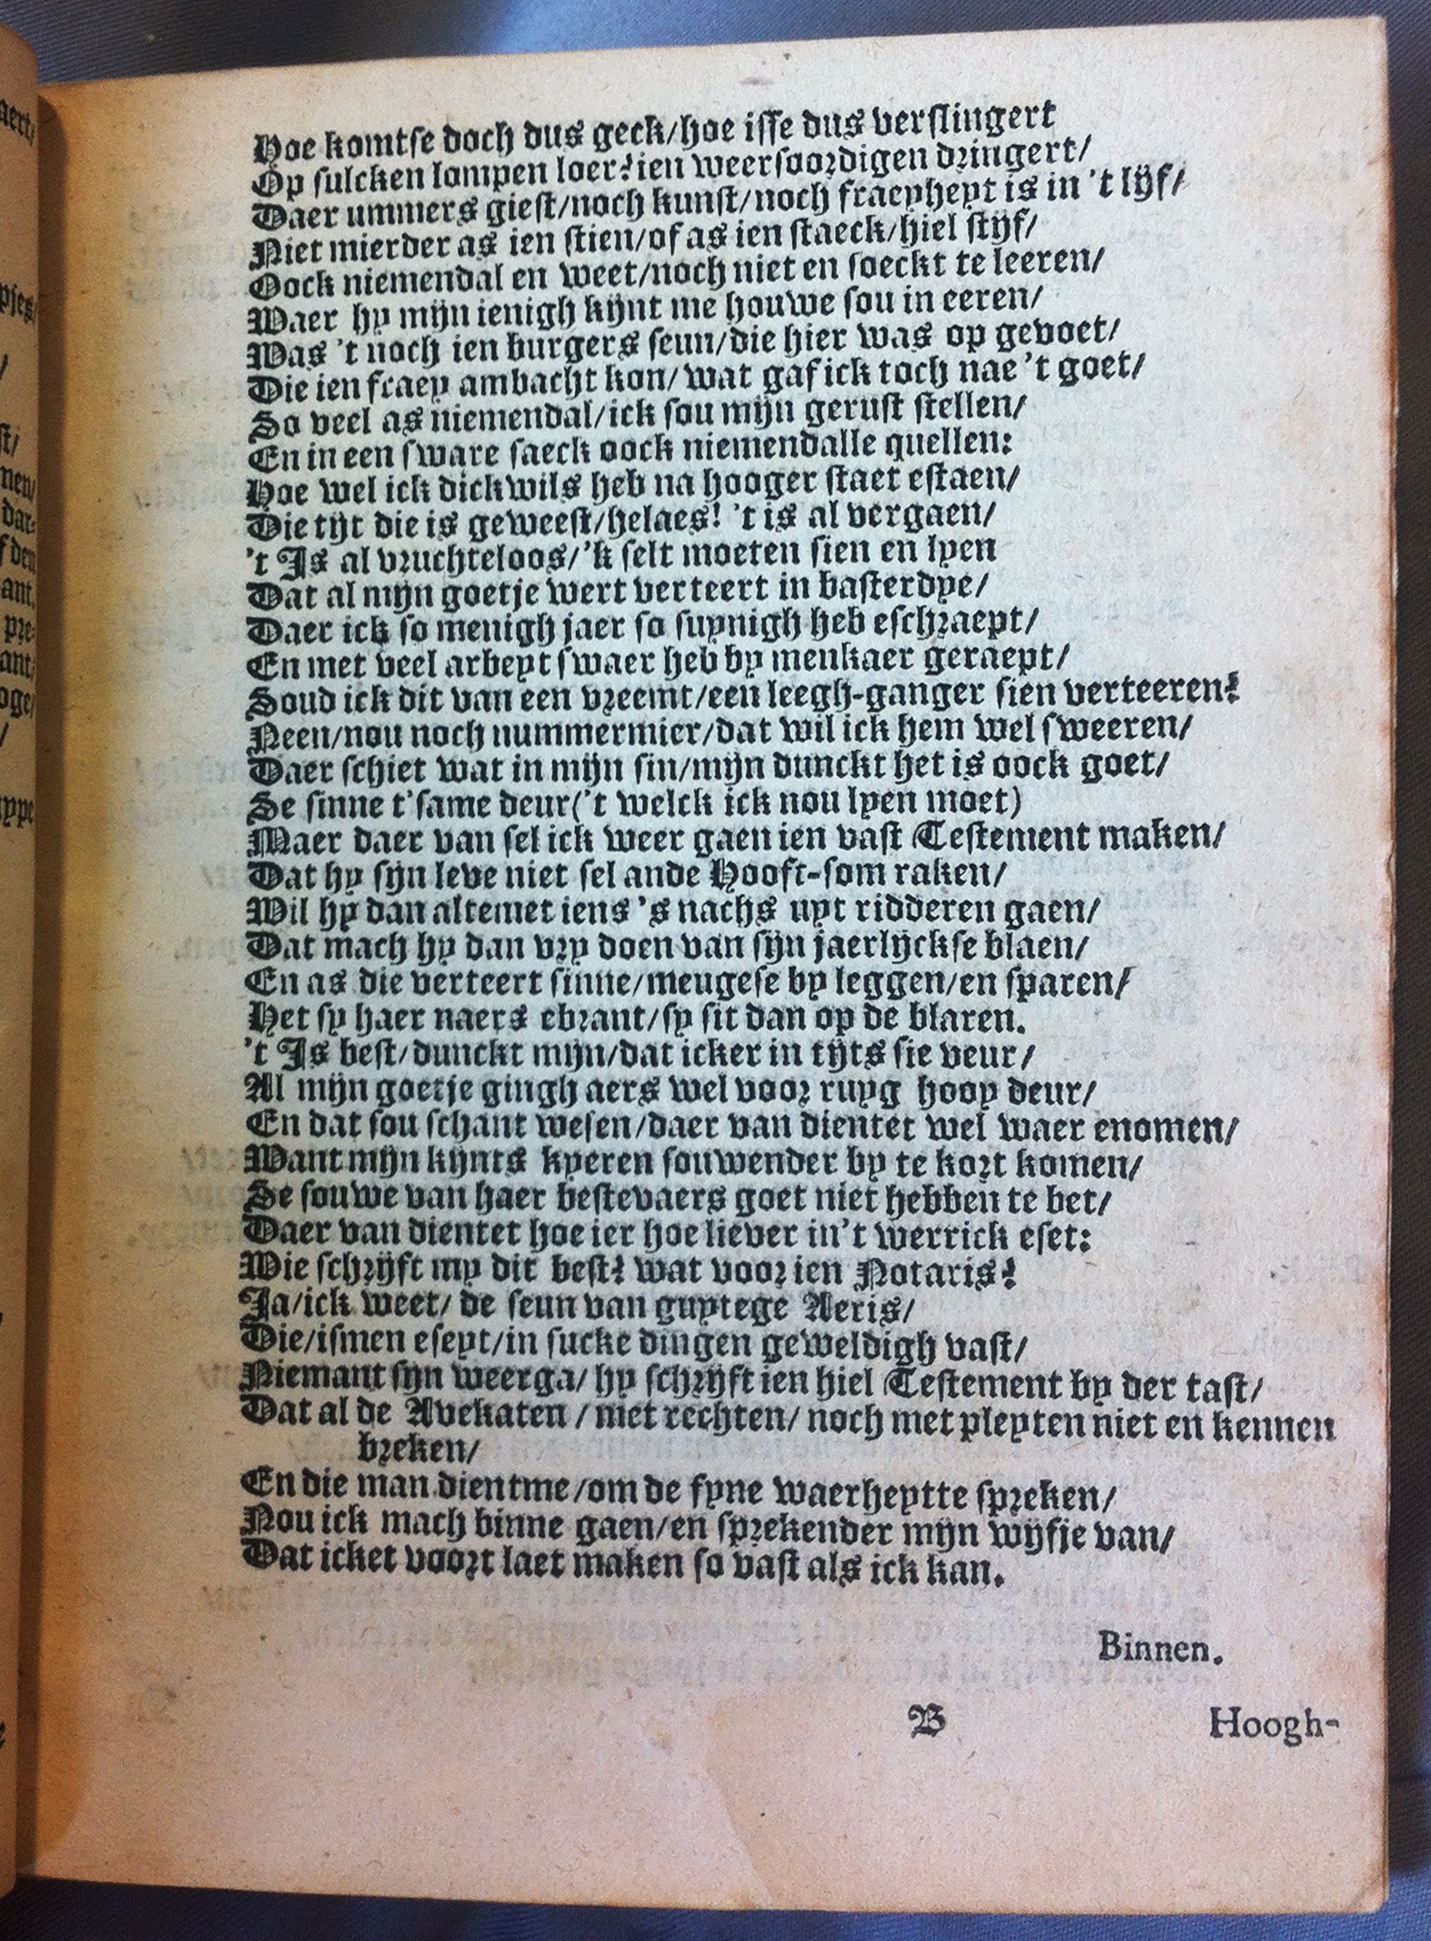 Hoe komtse doch dus geck/hoe isse dus verslingert
Op sulcken lompen loer? ien weersoordigen dringert/
Daer ummers giest/noch kunst/noch fraeyheyt is in 't lijf/
Niet mierder as ien stien/of as ien staeck/hiel stijf/
Oock niemendal en weet/noch niet en soeckt te leeren/
Waer hy mijn ienigh kijnt me houwe sou in eeren/
Was 't noch ien burgers seun/die hier was op gevoet/
Die ien fraey ambacht kon/wat gaf ick toch nae 't goet/
So veel as niemendal/ick sou mijn gerust stellen/
En in een sware saeck oock niemendalle quellen:
Hoe wel ick dickwils heb na hooger staet estaen/
Die tijt die is geweest/helaes! 't is al vergaen/
't Is al vruchteloos/'k selt moeten sien en lyen
Dat al mijn goetje wert verteert in basterdye/
Daer ick so menigh jaer so suynigh heb eschraept/
En met veel arbeyt swaer heb by menkaer geraept/
Soud ick dit van een vreemt/een leegh-ganger sien verteeren?
Neen/nou noch nummermier/dat wil ick hem wel sweeren/
Daer schiet wat in mijn sin/mijn dunckt het is oock goet/
Se sinne t'same deur('t welck ick nou lyen moet)
Maer daer van sel ick weer gaen ien vast Testement maken/
Dat hy sijn leve niet sel ande Hooft-som raken/
Wil hy dan altemet iens 's nachs uyt ridderen gaen/
Dat mach hy dan vry doen van sijn jaerlijckse blaen/
En as die verteert sinne/meugese by leggen/en sparen/
Het sy haer naers ebrant/sy sit dan op de blaren.
't Is best/dunckt mijn/dat icker in tijts sie veur/
Al mijn goetje gingh aers wel voor ruyg hoop deur/
En dat sou schant wesen/daer van dientet wel waer enomen/
Want mijn kijnts kyeren souwender by te kort komen/
Se souwe van haer bestevaers goet niet hebben te bet/
Daer van dientet hoe ier hoe liever in't werrick eset:
Wie schrijft my dit best? wat voor ien Notaris?
Ja/ick weet/ de seun van guytege Aeris/
Die/ismen eseyt/in sucke dingen geweldigh vast/
Niemant sijn weerga/ hy schrijft ien hiel Testement by der tast/
Dat al de Avekaten / met rechten/ noch met pleyten niet en kennen
breken/
En die man dientme/om de fyne waerheytte spreken/
Nou ick mach binne gaen/en sprekender mijn wijfje van/
Dat icket voort laet maken so vast als ick kan.
Binnen.
B Hoogh-